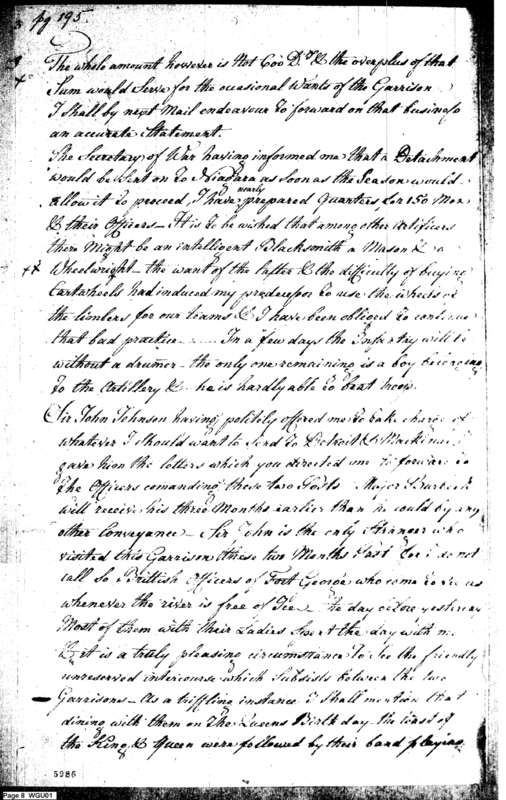 pg 195.
The whole amount however is Not 600 Drs & the overplus of that
Sum would Serve for the occasional Wants of the Garrison
I Shall by next Mail endeavour to forward on that business
an accurate Statement.
The Secretary of War having informed me that a Detachment
would be Sent on to Niagara as soon as the Season would
allow it to proceed, I have nearly prepared Quarters for 150 Men
& their Officers - It is to be wished that among other Artificers
there Might be an intelligent Blacksmith a Mason & a
Wheelwright - the want of the latter & the difficulty of buying
Cartwheels had induced my predecessor to use the wheels of
the limbers for our teams & I have been obliged to continue
that bad practice - In a few days the Infantry will be
without a drumer - the only one remaining is a boy belonging
to the Artillery & he is hardly able to beat troop.
Sir John Johnson having politely offered me to take charge of
whatever I should want to Send to Detroit & Mackinac I
gave him the letters which you directed me to forward to
the Officers comanding these two Posts Major
will receive his three Months earlier than he could by any
other Conveyance - Sir John is the only Stranger who
visited this Garrison these two Months Past for I do not
call So Brittish Officers of Fort George who come to See us
whenever the river is free of Ice the day before yesterday
Most of them with their Ladies Spent the day with me
& it is a truly pleasing circumstance to See the friendly
unreserved intercourse which Subsists between the two
Garrisons - As a triffling instance I Shall mention that
dining with them on The Queens Birth day the toast of
the King & Queen were followed by their band playing
5986
Page 8 WGU01